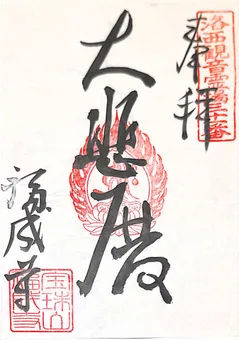 奉拝
洛西観音霊場
大悲殿
福成寺
宝珠山
福成寺